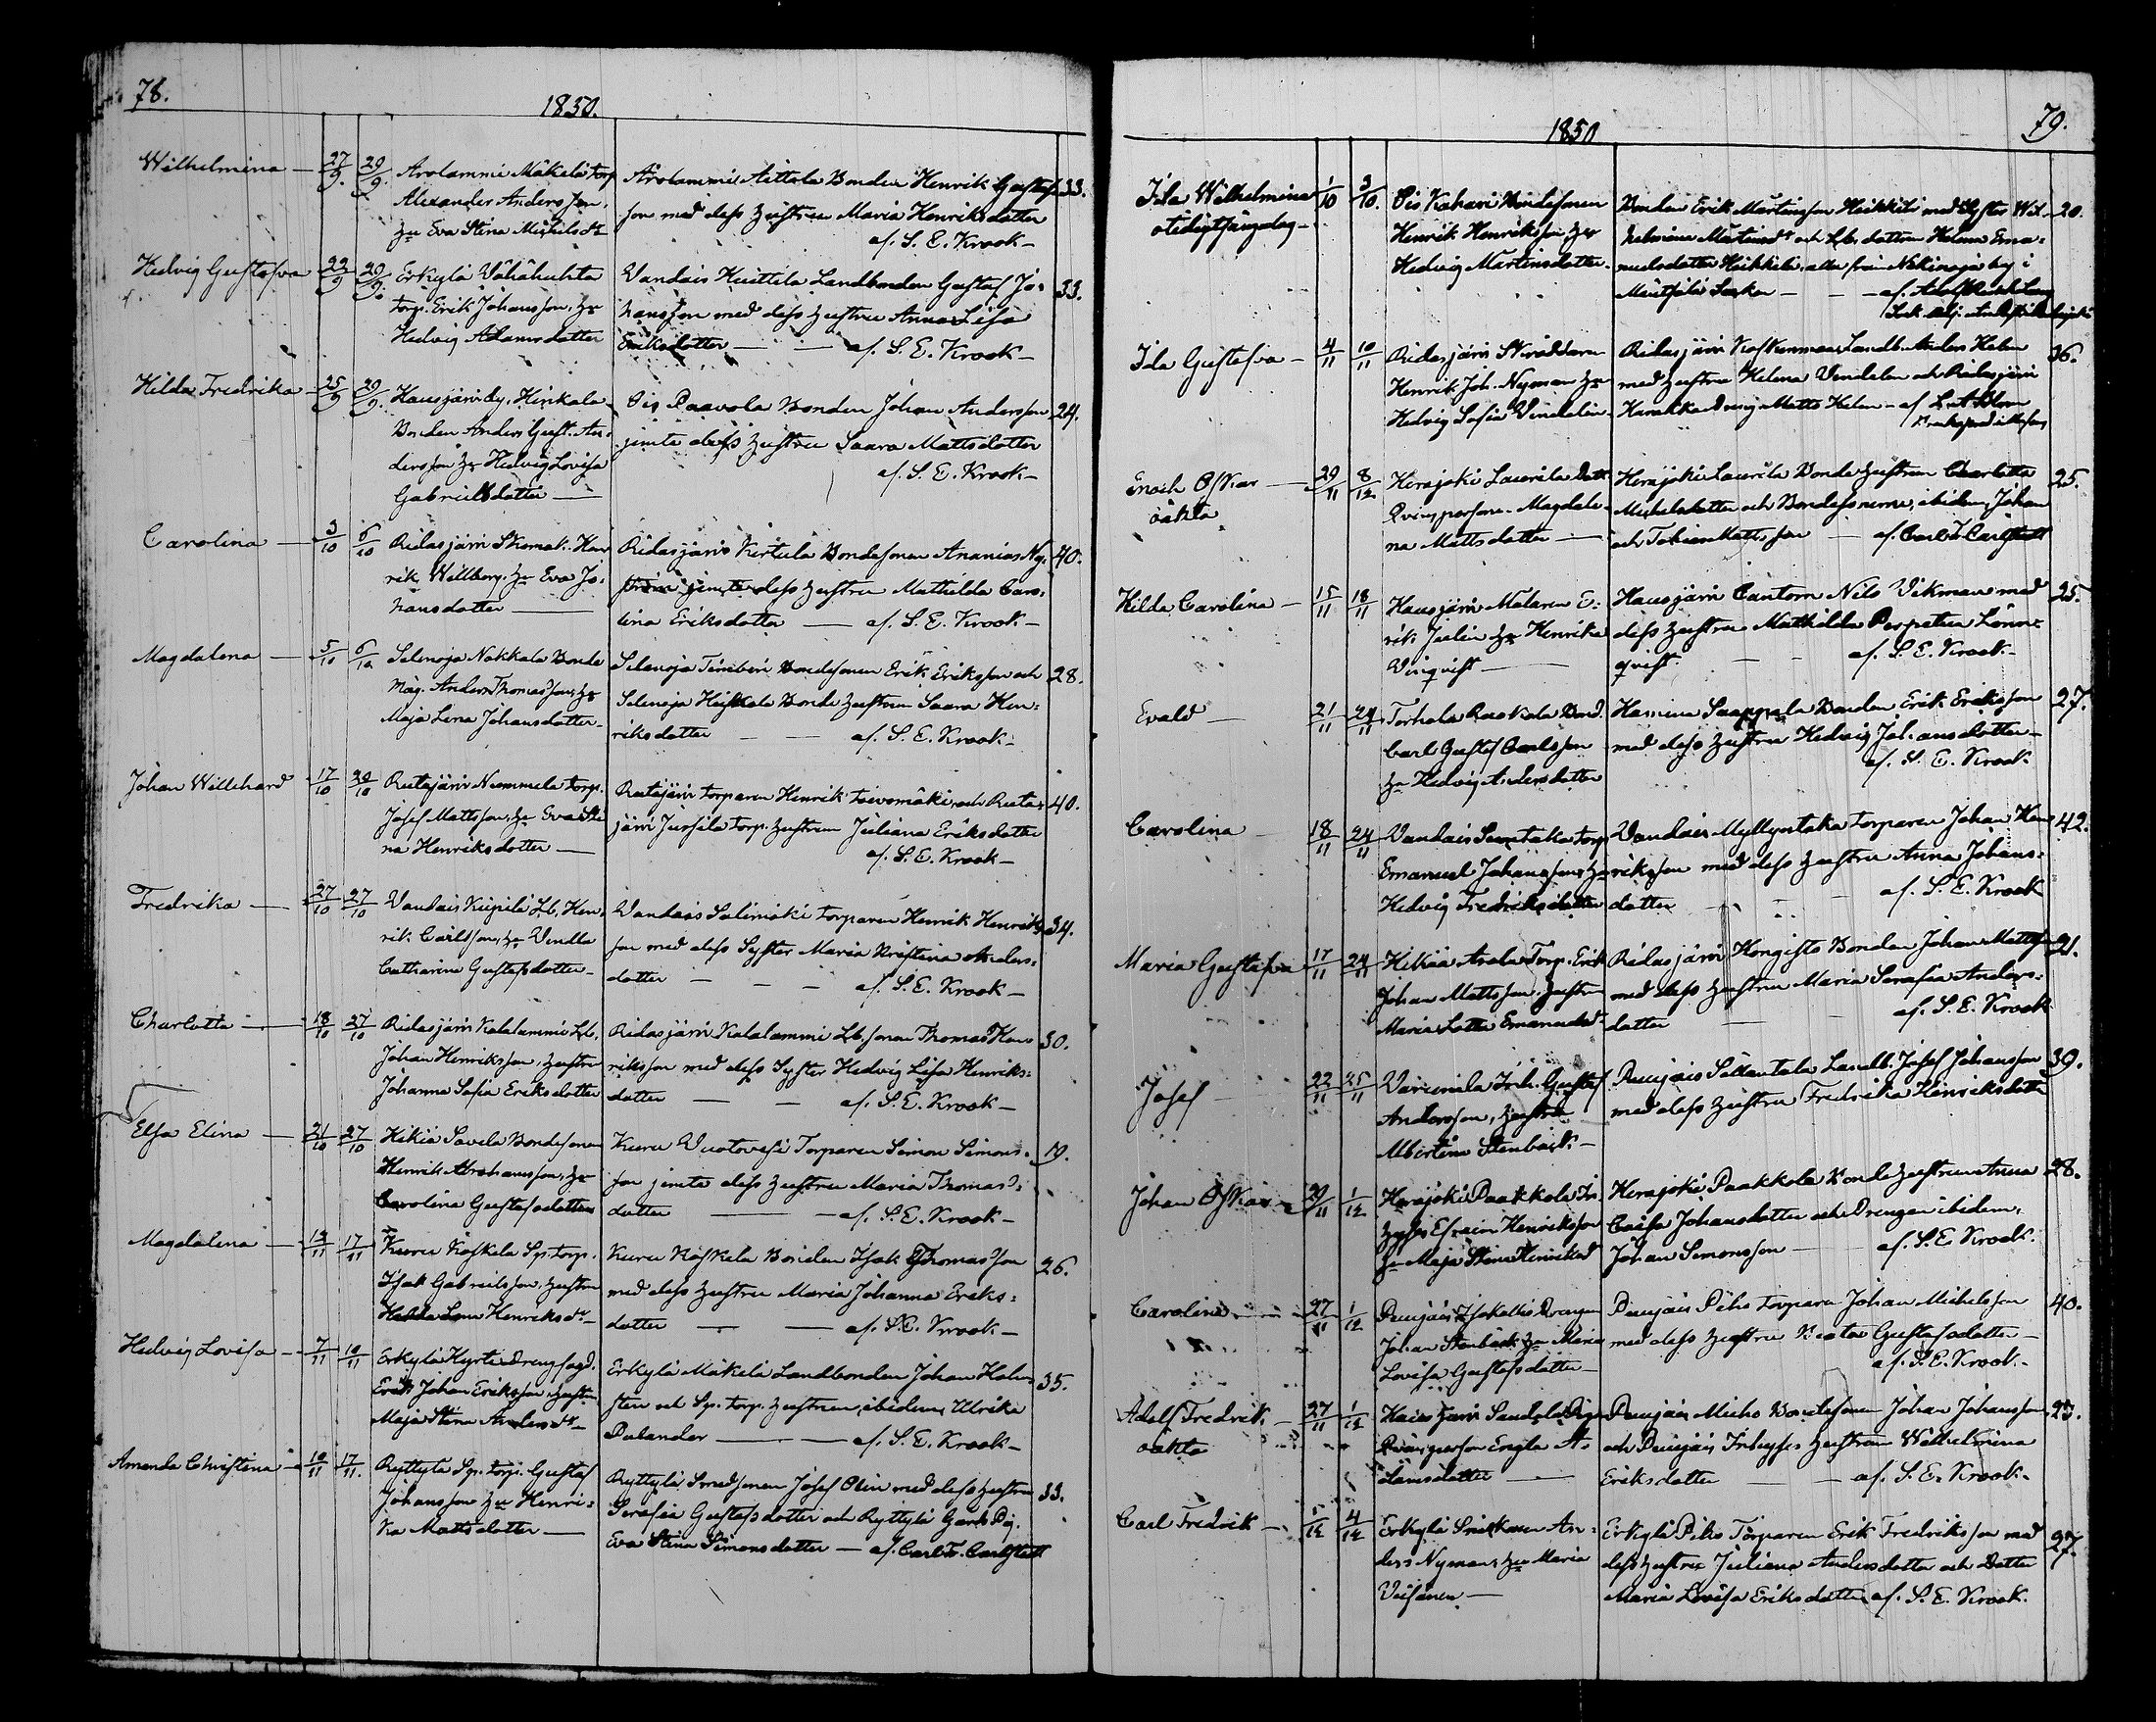 78.
1850.
Wilhelmina — 27/9. 29/9. Arolammi Mäkelä torp
Alexander Andersson,
hu Eva Stina Michelsdr
Arolammi Aittola Bonden Henrik Gustafs 33.
son med dess hustru Maria Henriksdotter
af. S. E. Krook —
Hedvig Gustafva 22/9 29/9. Erkylä Vähähuhta
torp. Erik Johansson, hu
Hedvig Adamsdotter
Vandais Huittila Landbonden Gustaf Jo= 33.
hansson med dess hustru Anna Lisa
Eriksdotter — — af. S. E. Krook —
Hilda Fredrika 25/9 29/9. Hausjärvi by, Hinkala
Bonden Anders Gust. An=
dersson hu Hedvig Lovisa
Gabrielsdotter —
Ois Paavola Bonden Johan Andersson 24.
jemte dess hustru Saara Mattsdotter
af. S. E. Krook —
Carolina — 3/10 6/10 Ridasjärvi Skomak. Hen
rik Willberg, hu Eva Jo=
hansdotter —
Ridasjärvi Kertula Bondesonen Ananias Ny= 40.
ström jemte dess hustru Mathilda Caro=
lina Eriksdotter — af. S. E. Krook —
Magdalena — 5/10 6/10 Selenoja Nokkala Bonde
måg. Anders Thomasson, hu
Maja Lena Johansdotter —
Selenoja Tiniberi Bondesonen Erik Eriksson och 28.
Selenoja Heikkala Bonde hustrun Saara Hen=
riksdotter — — af. S. E. Krook —
Johan Willehard 17/10 20/10 Rutajärvi Nummela torp.
Josef Mattsson, hu Eva Sti
na Henriksdotter —
Rutajärvi torparen Henrik Toivomäki, och Ruta= 40.
järvi Jussila torp. hustrun Juliana Eriksdotter
af. S. E. Krook —
Fredrika — 27/10 27/10 Vandais Kiipilä Lb. Hen=
rik Carlsson, hu Vendla
Catharina Gustafsdotter —
Vandais Salimäki torparen Henrik Henriks 34.
son med dess Syster Maria Kristina Anders=
dotter — — — af. S. E. Krook —
Charlotta — 18/10 27/10 Ridasjärvi Kalalammi Lb.
Johan Henriksson, hustru
Johanna Sofia Eriksdotter
Ridasjärvi Kalalammi Lb. sonen Thomas Hen= 30.
riksson med dess Syster Hedvig Lisa Henriks=
dotter — — af. S. E. Krook —
Elsa Elina — 21/10 27/10 Hikiä Savela Bondesonen
Henrik Abrahamsson, hu
Carolina Gustafsdotter
Kuru Vuotovesi Torparen Simon Simons= 19.
son jemte dess hustru Maria Thomas=
dotter — — af. S. E. Krook —
Magdalena — 13/11 17/11 Kuru Koskela Sp. torp.
Isak Gabrielsson, hustru
Helena Lena Henriksdr —
Kuru Koskela Bonden Isak Thomasson 26.
med dess hustru Maria Johanna Eriks=
dotter — — af. S. E. Krook —
Hedvig Lovisa — 7/11 10/11 Erkylä Hyrtiä Drengsagd.
Erik Johan Eriksson, hustru
Maja Stina Andersdr —
Erkylä Mäkelä Landbonden Johan Holm= 35.
sten och Sp. torp. hustrun ibidem, Ulrika
Palander — — af. S. E. Krook —
Amanda Christina — 10/11 17/11. Ryttylä Sp. torp. Gustaf
Johansson hu Henri=
ka Mattsdotter —
Ryttylä Smedsonen Josef Olin med dess hustru 33.
Serafia Gustafsdotter och Ryttylä Gårds Pig.
Eva Stina Simonsdotter — af. Carl Fr. Carlstedt
1850
79.
Ida Wilhelmina 1/10 3/10. Ois Kahari Bondesonen
otidigt fängelag —
Henrik Henriksson hu
Hedvig Martinsdotter.
Bonden Erik Martinsson Heikkilä med Syster Wil= 20.
helmina Martinsdr och Lbr dottern Helena Ema=
nuelsdotter Heikkilä, alla från Nikinoja by i
Mentsälä Socken — —
Ida Gustafva — 4/11 10/11 Ridasjärvi Skräddaren
Henrik Joh. Nyman hu
Hedvig Sofia Vendelin
Ridasjärvi Koskenmaa Landb. Anders Helen 36.
med hustru Helena Vendelin och Ridasjärvi
Matts Helen — af
Enoch Oskar — 29/11 8/12 Herajoki Laurila
oäkta
Qvinsperson. Magdale=
na Mattsdotter —
Herajoki Laurila Bonde hustrun Charlotta 25.
Michelsdotter och Bondesonerne, ibidem, Johan
och Tobias Mattsson — af. Carl Fr. Carlstedt
Hilda Carolina — 15/11 18/11 Hausjärvi Målaren E=
rik Julin hu Henrika
Winqvist —
Hausjärvi Cantorn Nils Vikman med 25.
dess hustru Mathilda Perpetua Lönn=
qvist. — — af. S. E. Krook —
Evald — 21/11 24/11 Torhola Raakola Bond.
Carl Gustaf Carlsson
hu Hedvig Andersdotter
Hamina Saappala Bonden Erik Eriksson 27.
med dess hustru Hedvig Johansdotter —
af. S. E. Krook.
Carolina 18/11 24/11 Vandais Suontaka torp.
Emanuel Johansson, hu
Hedvig Fredriksdotter
Vandais Myllyntaka torparen Johan Hen= 42.
riksson med dess hustru Anna Johans=
dotter — — af. S. E. Krook
Maria Gustafva 17/11 24/11 Hikiä Arola Torp. Erik
Johan Mattsson, hustru
Maria Lotta Emanuelsdr
Ridasjärvi Hongisto Bonden Johan Mattsson 21.
med dess hustru Maria Serafia Anders=
dotter — af. S. E. Krook
Josef — 22/11 25/11 Inh. Gustaf
Andersson, hustru
Albertina Stenbäck —
Puujais Sillantaka Landb. Josef Johansson 39.
med dess hustru Fredrika Henriksdotter
Johan Oskar — 29/11 1/12 Herajoki Paakkola In.
hyses Efraim Henriksson
hu Maja Stina Henriksd
Herajoki Paakkola Bonde hustrun Anna 28.
Caisa Johansdotter och Drengen ibidem,
Johan Simonsson — af. S. E. Krook.
Carolina — 27/11 1/12 Puujais Isokallio Drengen
Johan Stenbäck hu Maria
Lovisa Gustafsdotter —
Puujais Piho torparen Johan Michelsson 40.
med dess hustru Beata Gustafsdotter —
af. S. E. Krook. —
Adolf Fredrik — 27/11 1/12 Hausjärvi Sandola Pig.
oäkta
Qvinsperson Engla A=
damsdotter —
Puujais Micko Bondesonen Johan Johansson 23.
och Puujais Inhyses hustrun Wilhelmina
Eriksdotter — — af. S. E. Krook.
Carl Fredrik — 1/12 4/12 Erkylä Snickaren An=
ders Nyman, hu Maria
Väisänen —
Erkylä Piho Torparen Erik Fredriksson med 27.
dess hustru Juliana Andersdotter och Dotter
Maria Lovisa Eriksdotter af. S. E. Krook.